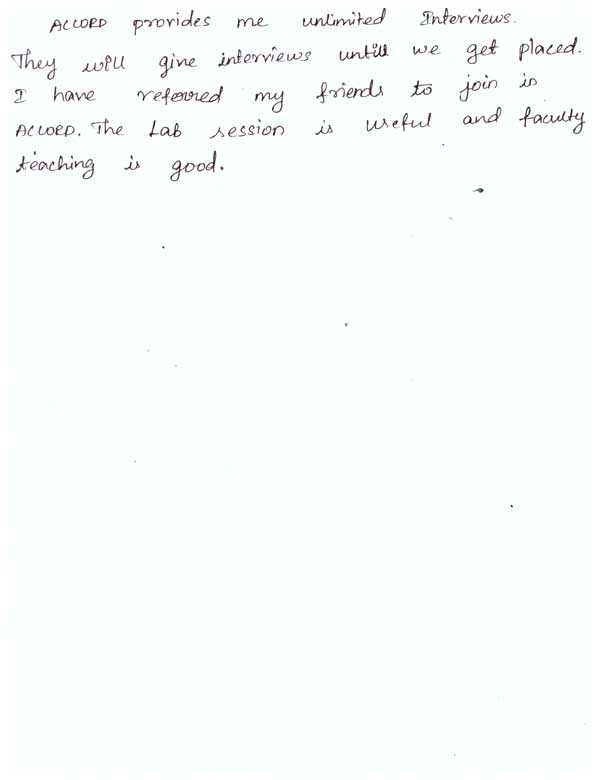 ACCORD provides me unlimited Interviews.
They will give interviews untill we get placed.
I have referred my friends to join in
ACCORD. The Lab session is useful and faculty
teaching is good.